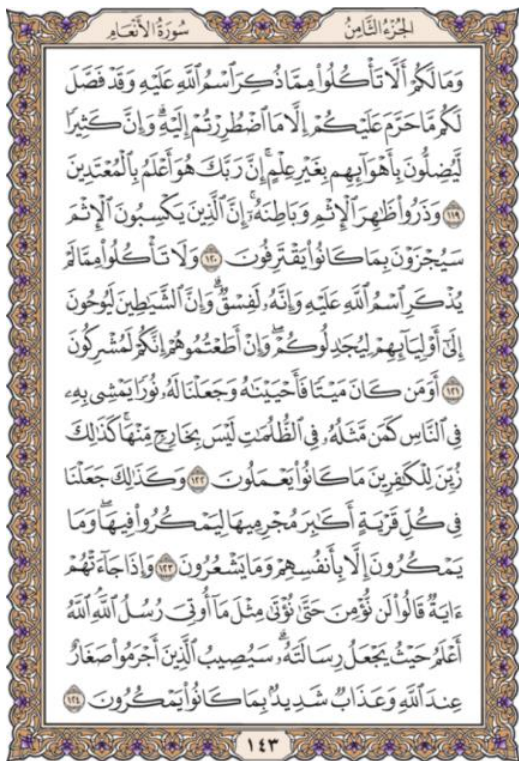 الجزء الثامن
سورة الأنعام
وَمَا لَكُمْ أَلَّا تَأْكُلُوا۟ مِمَّا ذُكِرَ ٱسْمُ ٱللَّهِ عَلَيْهِ وَقَدْ فَصَّلَ
لَكُم مَّا حَرَّمَ عَلَيْكُمْ إِلَّا مَا ٱضْطُرِرْتُمْ إِلَيْهِ ۗ وَإِنَّ كَثِيرًا
لَّيُضِلُّونَ بِأَهْوَآئِهِم بِغَيْرِ عِلْمٍ ۗ إِنَّ رَبَّكَ هُوَ أَعْلَمُ بِٱلْمُعْتَدِينَ
١١٩ وَذَرُوا۟ ظَٰهِرَ ٱلْإِثْمِ وَبَاطِنَهُۥٓ ۚ إِنَّ ٱلَّذِينَ يَكْسِبُونَ ٱلْإِثْمَ
سَيُجْزَوْنَ بِمَا كَانُوا۟ يَقْتَرِفُونَ ١٢٠ وَلَا تَأْكُلُوا۟ مِمَّا لَمْ
يُذْكَرِ ٱسْمُ ٱللَّهِ عَلَيْهِ وَإِنَّهُۥ لَفِسْقٌ ۗ وَإِنَّ ٱلشَّيَٰطِينَ لَيُوحُونَ
إِلَىٰٓ أَوْلِيَآئِهِمْ لِيُجَٰدِلُوكُمْ ۖ وَإِنْ أَطَعْتُمُوهُمْ إِنَّكُمْ لَمُشْرِكُونَ
١٢١ أَوَمَن كَانَ مَيْتًا فَأَحْيَيْنَٰهُ وَجَعَلْنَا لَهُۥ نُورًا يَمْشِى بِهِۦ
فِى ٱلنَّاسِ كَمَن مَّثَلُهُۥ فِى ٱلظُّلُمَٰتِ لَيْسَ بِخَارِجٍ مِّنْهَا ۚ كَذَٰلِكَ
زُيِّنَ لِلْكَٰفِرِينَ مَا كَانُوا۟ يَعْمَلُونَ ١٢٢ وَكَذَٰلِكَ جَعَلْنَا
فِى كُلِّ قَرْيَةٍ أَكَٰبِرَ مُجْرِمِيهَا لِيَمْكُرُوا۟ فِيهَا ۖ وَمَا
يَمْكُرُونَ إِلَّا بِأَنفُسِهِمْ وَمَا يَشْعُرُونَ ١٢٣ وَإِذَا جَآءَتْهُمْ
ءَايَةٌ قَالُوا۟ لَن نُّؤْمِنَ حَتَّىٰ نُؤْتَىٰ مِثْلَ مَآ أُوتِىَ رُسُلُ ٱللَّهِ ۘ ٱللَّهُ
أَعْلَمُ حَيْثُ يَجْعَلُ رِسَالَتَهُۥ ۗ سَيُصِيبُ ٱلَّذِينَ أَجْرَمُوا۟ صَغَارٌ
عِندَ ٱللَّهِ وَعَذَابٌ شَدِيدٌۢ بِمَا كَانُوا۟ يَمْكُرُونَ ١٢٤
١٤٣